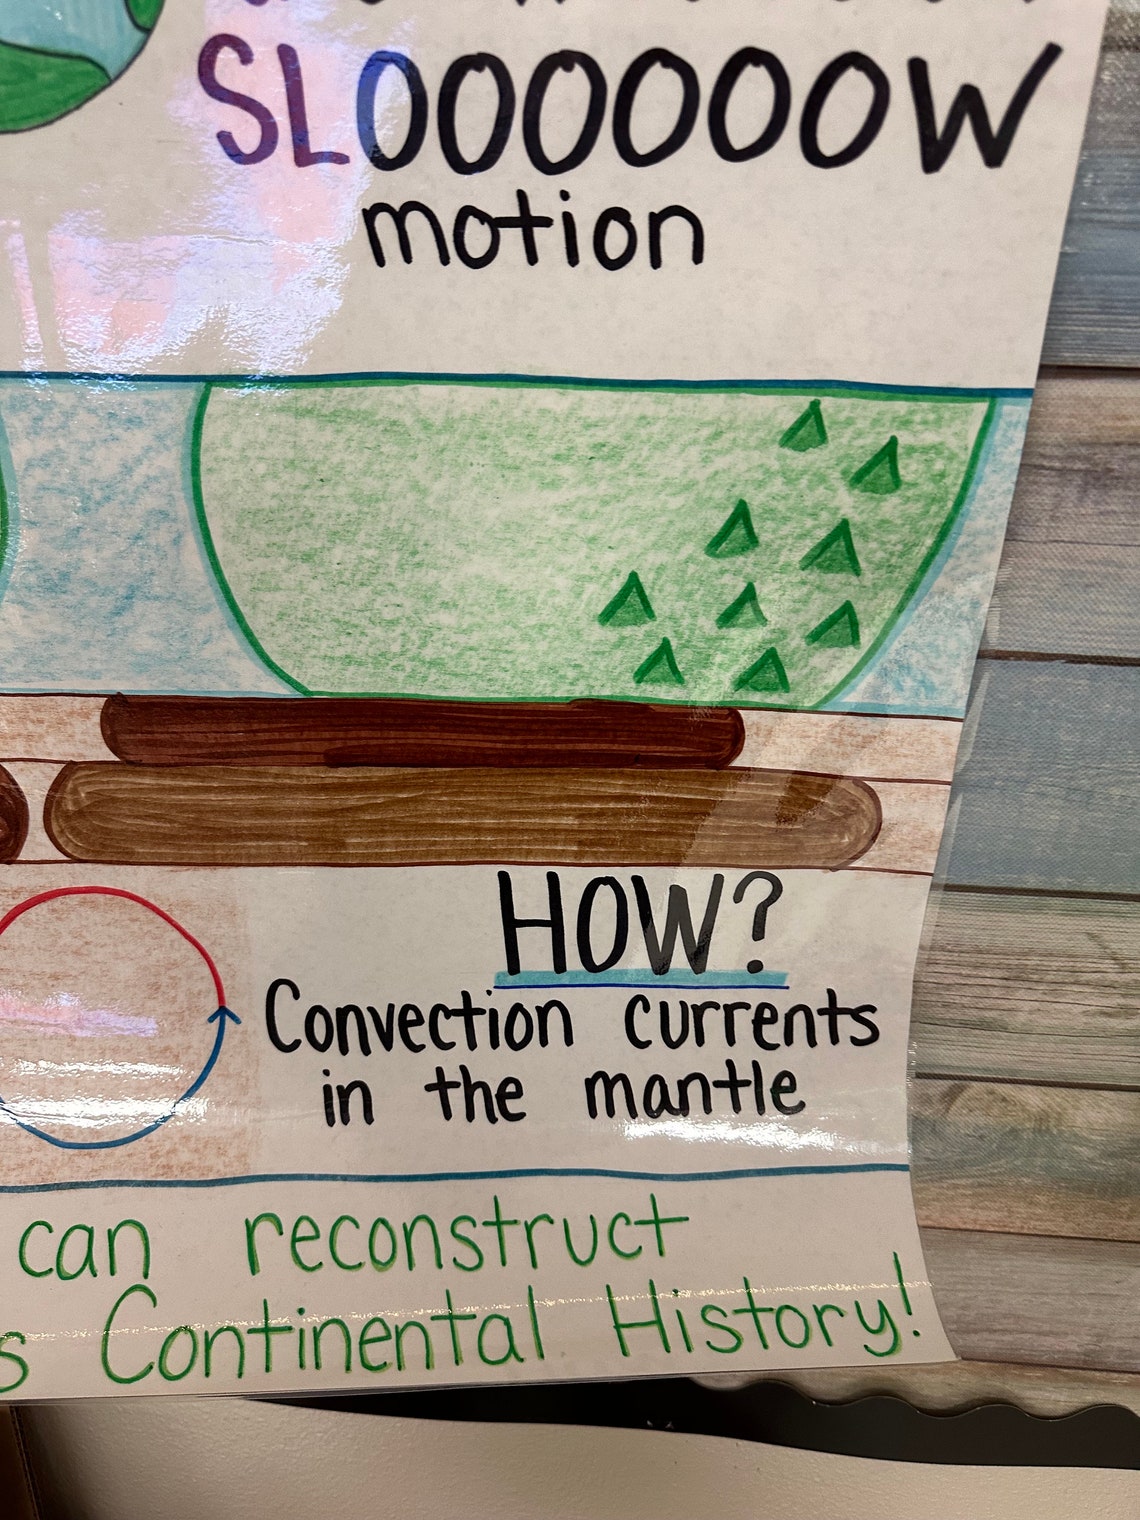 SLOOOOOOW
motion
HOW?
Convection currents
in the mantle
can reconstruct
Continental History!